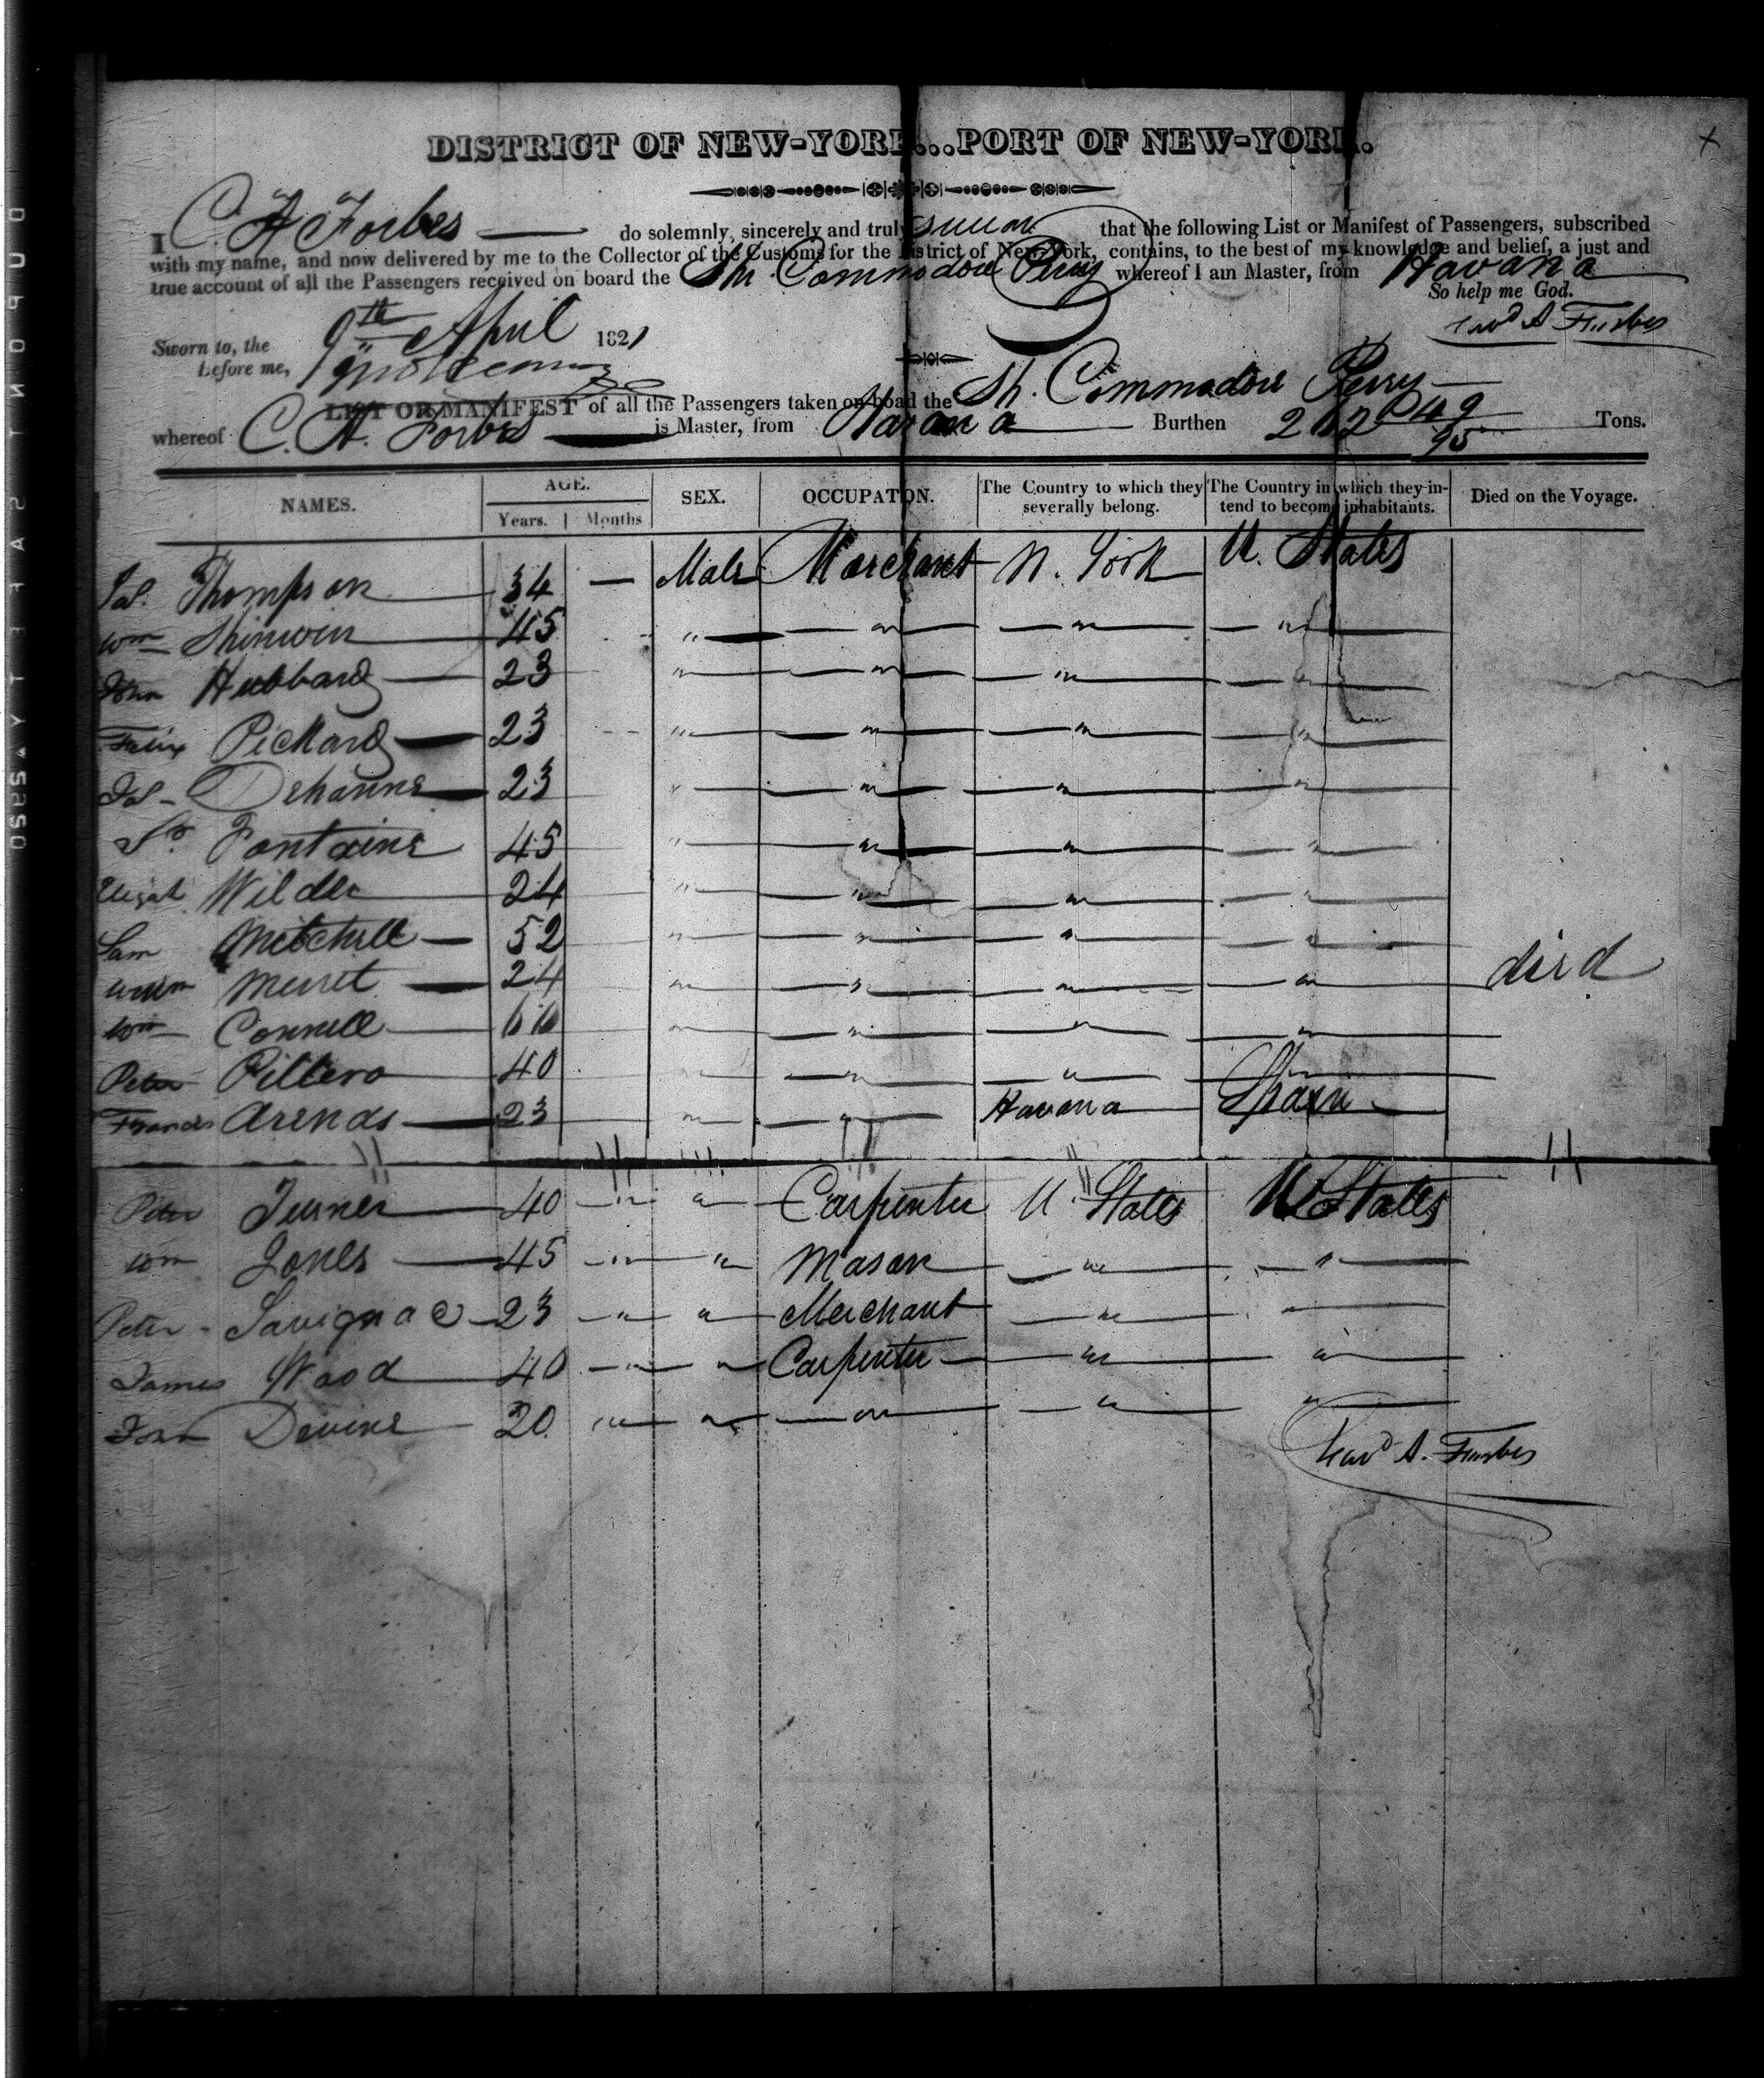 DISTRICT OF NEW-YORK...PORT OF NEW-YORK.
I C. A Forbes do solemnly, sincerely and truly swear that the following List or Manifest of Passengers, subscribed
with my name, and now delivered by me to the Collector of the Customs for the District of New-York, contains, to the best of my knowledge and belief, a just and
true account of all the Passengers received on board the Sh. Commodore Perry whereof I am Master, from Havana
So help me God.
Sworn to, the 9th April 1821
before me,
A. Forbes
LIST OR MANIFEST of all the Passengers taken on boad the Sh. Commodore Perry
whereof C. A. Forbes is Master, from Havana Burthen 262 49/95 Tons.
NAMES. AGE. SEX. OCCUPATON. The Country to which they severally belong. The Country in which they intend to become inhabitants. Died on the Voyage.
Years. Months
Thompson 34 — Male Merchant N. York U. States
Wm 45 " " " "
John Hubbard 23 " " " "
Felix Pickard 23 " " " "
Dehanne 23 " " " "
Fontaine 45 " " " "
Elijah Wilder 24 " " " "
Sam Mitchell 52 " " " "
Merret 24 " " " " died
Wm Connell " " " "
Peter Pillero 40 " " " "
Francis Arenas 23 " " Havana Spain
Peter Turner 40 " " Carpenter U. States U. States
Wm Jones 45 " " Mason " "
Peter Savignac 23 " " Merchant " "
James Wood 40 " " Carpenter " "
John Devine 20 " " " " "
A. Forbes